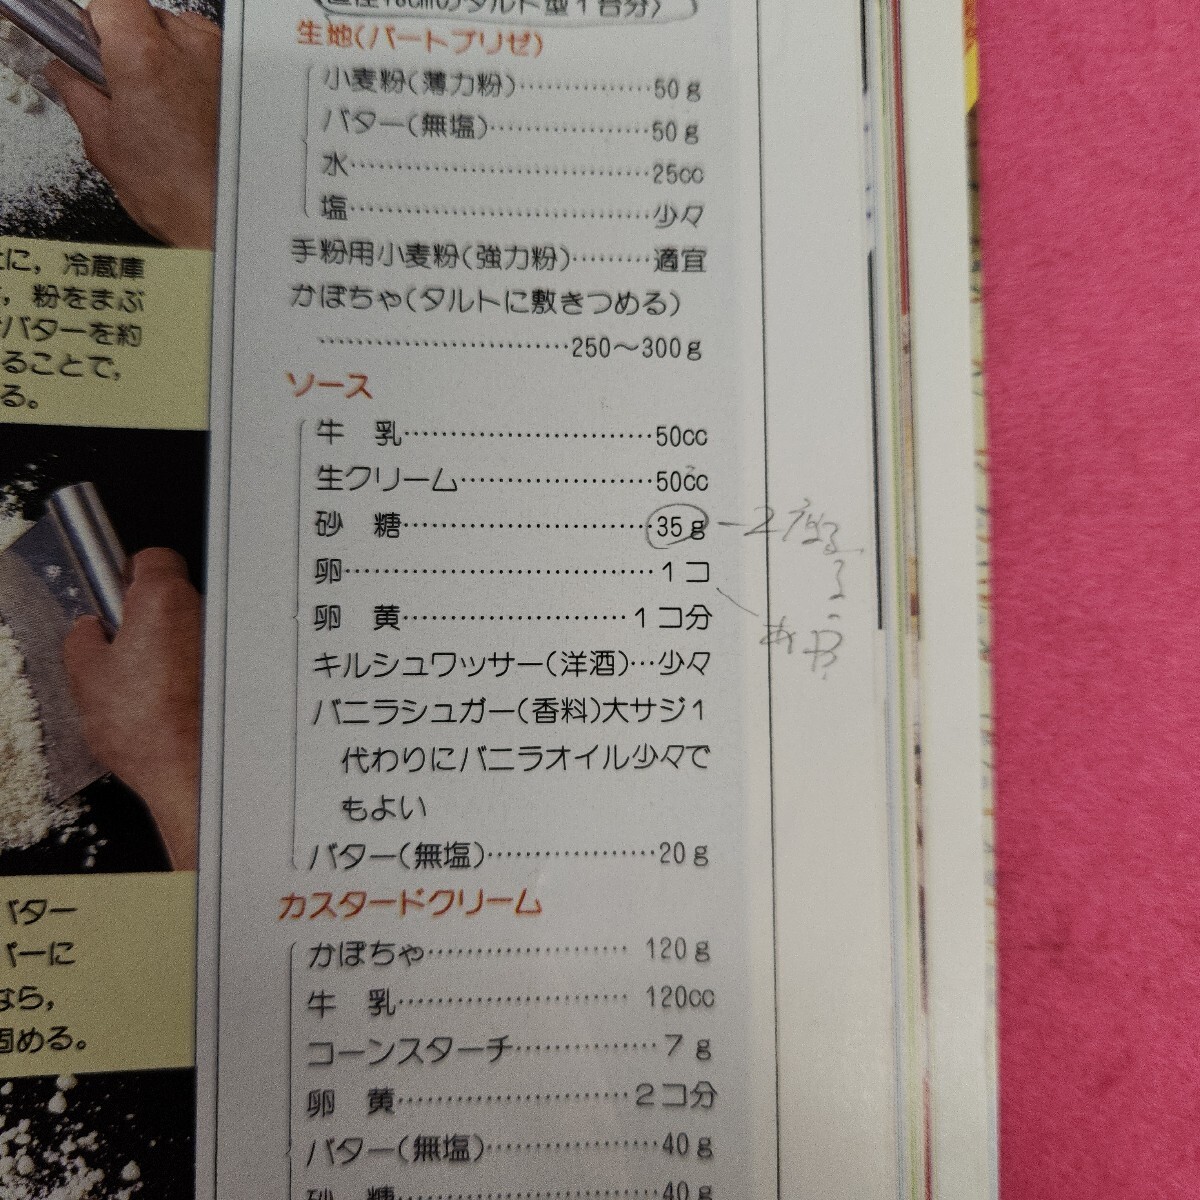 直径18cmのタルト型1台分)
生地(パートブリゼ)
小麦粉(薄力粉)……………50g
バター(無塩)………………50g
水……………………………25cc
塩……………………………少々
手粉用小麦粉(強力粉)………適宜
かぼちゃ(タルトに敷きつめる)
………………………250〜300g
ソース
牛 乳………………………50cc
生クリーム…………………50cc
砂 糖………………………35g
卵……………………………1コ
卵 黄……………………1コ分
キルシュワッサー(洋酒)…少々
バニラシュガー(香料)大サジ1
代わりにバニラオイル少々で
もよい
バター(無塩)………………20g
カスタードクリーム
かぼちゃ………………… 120g
牛 乳…………………… 120cc
コーンスターチ……………7g
卵 黄……………………2コ分
バター(無塩)………………40g
砂 糖………………………40g
に，冷蔵庫
，粉をまぶ
バターを約
ることで，
る。
バター
パーに
なら，
固める。